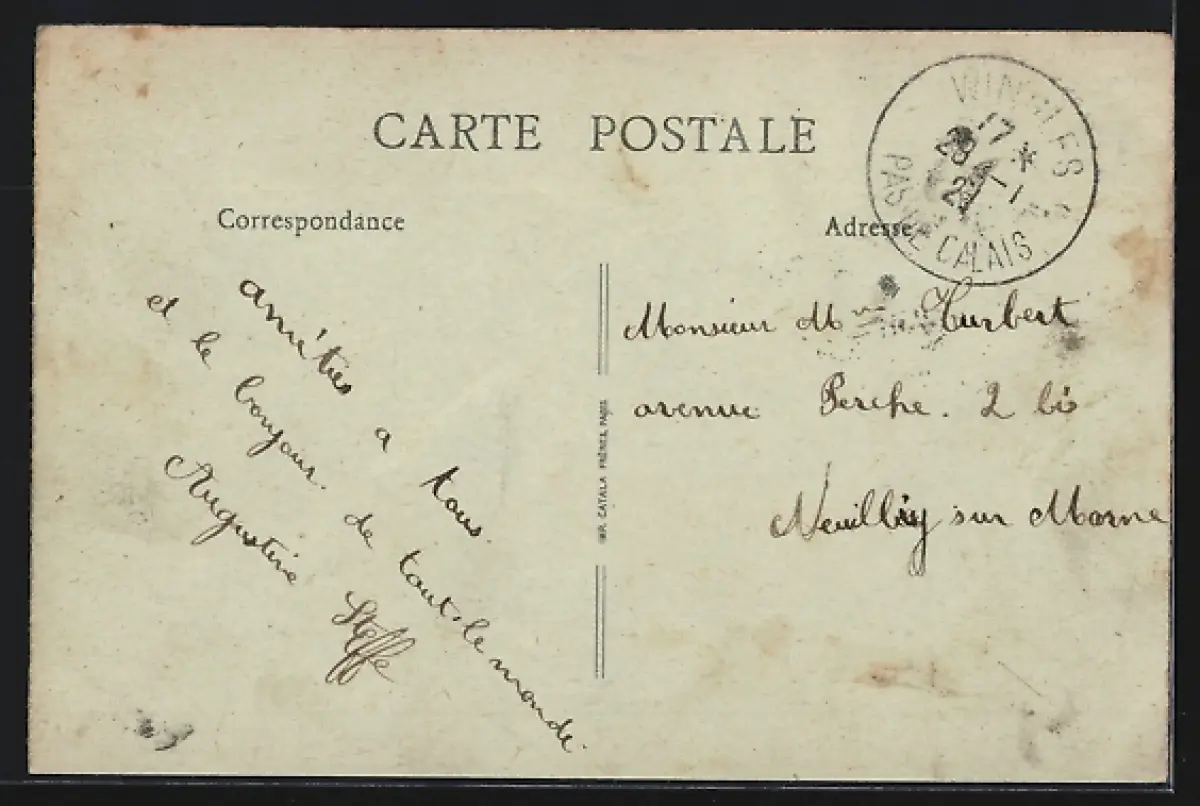 CARTE POSTALE
Correspondance
amitiés a tous.
et le bonjour. de tout. le monde.
Augustine Steffe
IMP. CATALA FRÈRES, PARIS
Adresse
WINGLES
17 *
28 - 1
PAS DE CALAIS
Monsieur Mme Hurbert
avenue Perche. 2 bis
Neuilly sur Marne